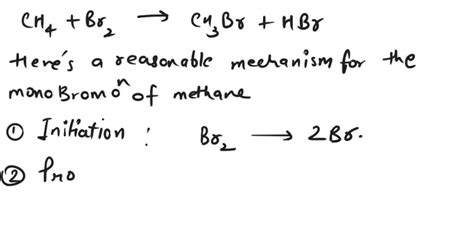 CH₄ + Br₂ → CH₃Br + HBr
Here's a reasonable mechanism for the
monoBromoⁿ of methane
① Initiation : Br₂ → 2Br·
② Pro